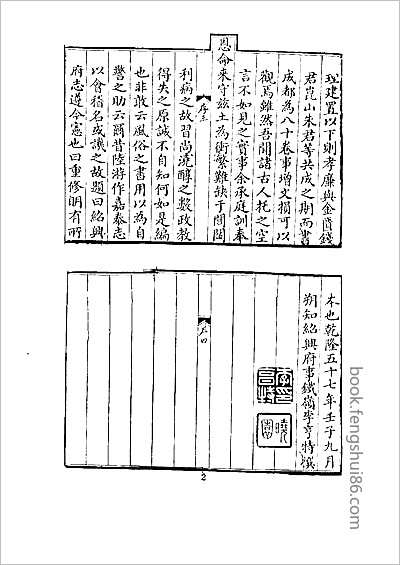 理建置以下則孝廉與金匱錢
君崑山朱君等共成之期而書
成都為八十卷事增文損可以
觀焉雖然吾聞諸古人托之空
言不如見之實事余承庭訓奉
恩命來守茲土為衝繁難缺于閭閻
序三
利病之故習尚澆醇之數政教
得失之原誠不自知何如是編
也非敢云風俗之書用以為自
警之助云爾昔陸游作嘉泰志
以會稽名或議之故題曰紹興
府志遵今憲也曰重修明有所
本也乾隆五十七年壬子九月
朔知紹興府事鐵嶺李亨特撰
序四
2
book.fengshui86.com